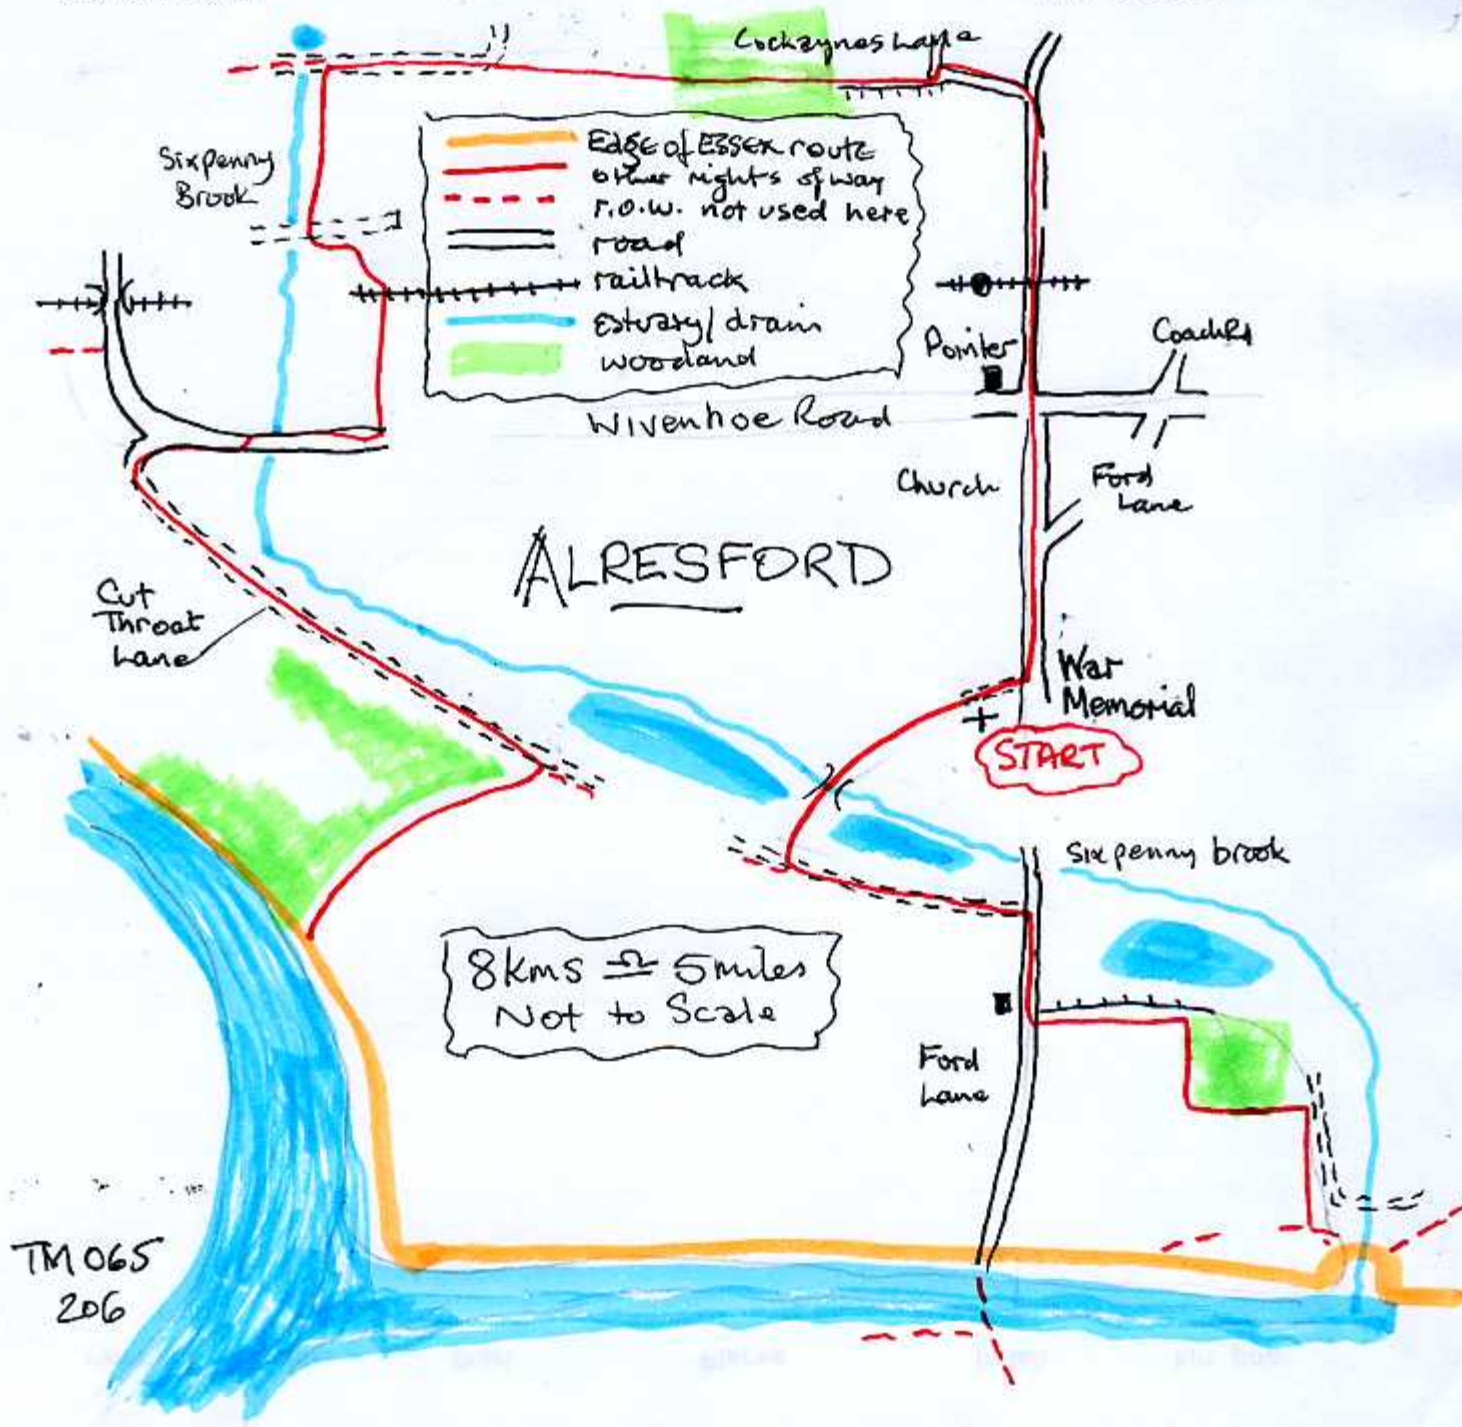 Cockaynes Lane
Sixpenny
Brook
Edge of ESSEX route
other rights of way
r.o.w. not used here
road
railtrack
estuary/drain
woodland
Pointer
Coach Rd
Wivenhoe Road
Church
Ford
Lane
ALRESFORD
Cut
Throat
Lane
War
Memorial
START
Sixpenny brook
8kms ≏ 5miles
Not to Scale
Ford
Lane
TM065
206